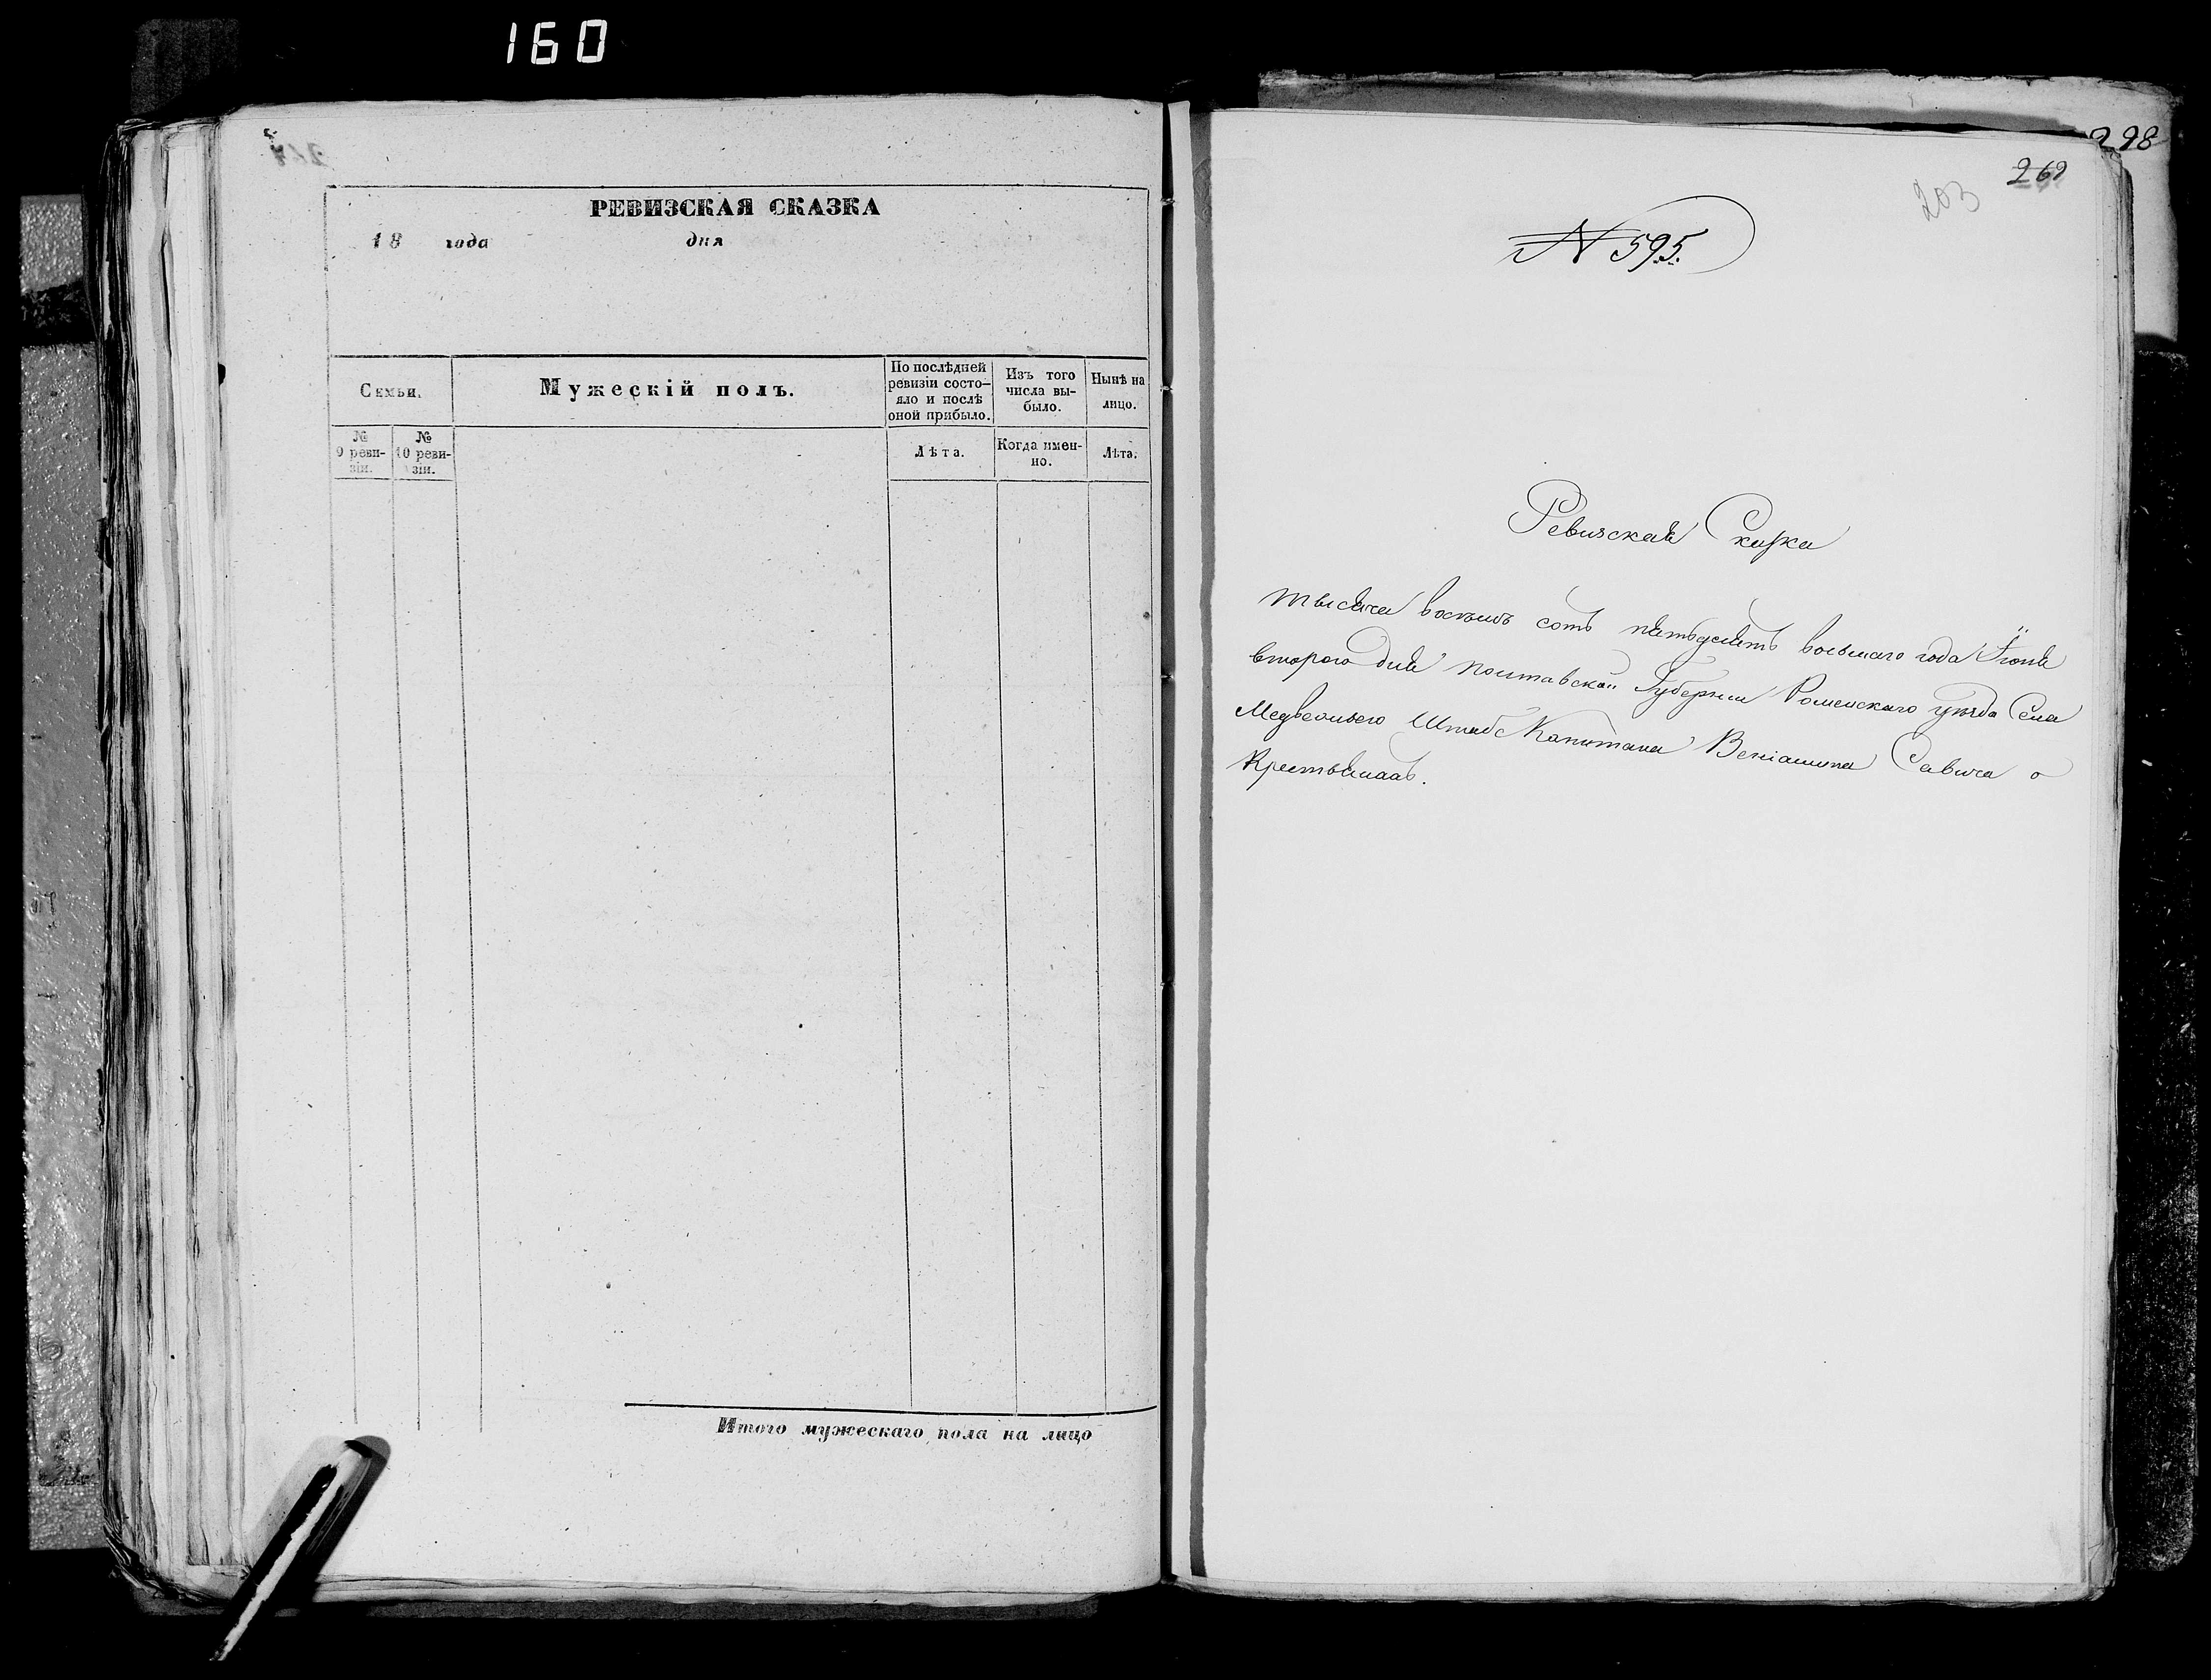 160
РЕВИЗСКАЯ СКАЗКА
18 года дня
Семьи.
Мужескій полъ.
По послѣдней ревизіи состояло и послѣ оной прибыло.
Изъ того числа выбыло.
Ныне на лицо.
№ 9 ревизіи.
№ 10 ревизіи.
Лѣта.
Когда именно.
Лѣта.
Итого мужескаго пола на лицо
298
269
203
№ 595.
Ревизская Скаска
тысяча восемь сотъ пятьдесятъ восьмаго года Іюня
втораго дня Полтавской Губерніи Роменскаго уѣзда Села
Медвежьего Штабс Капитана Веніамина Савича о
Крестьянахъ.